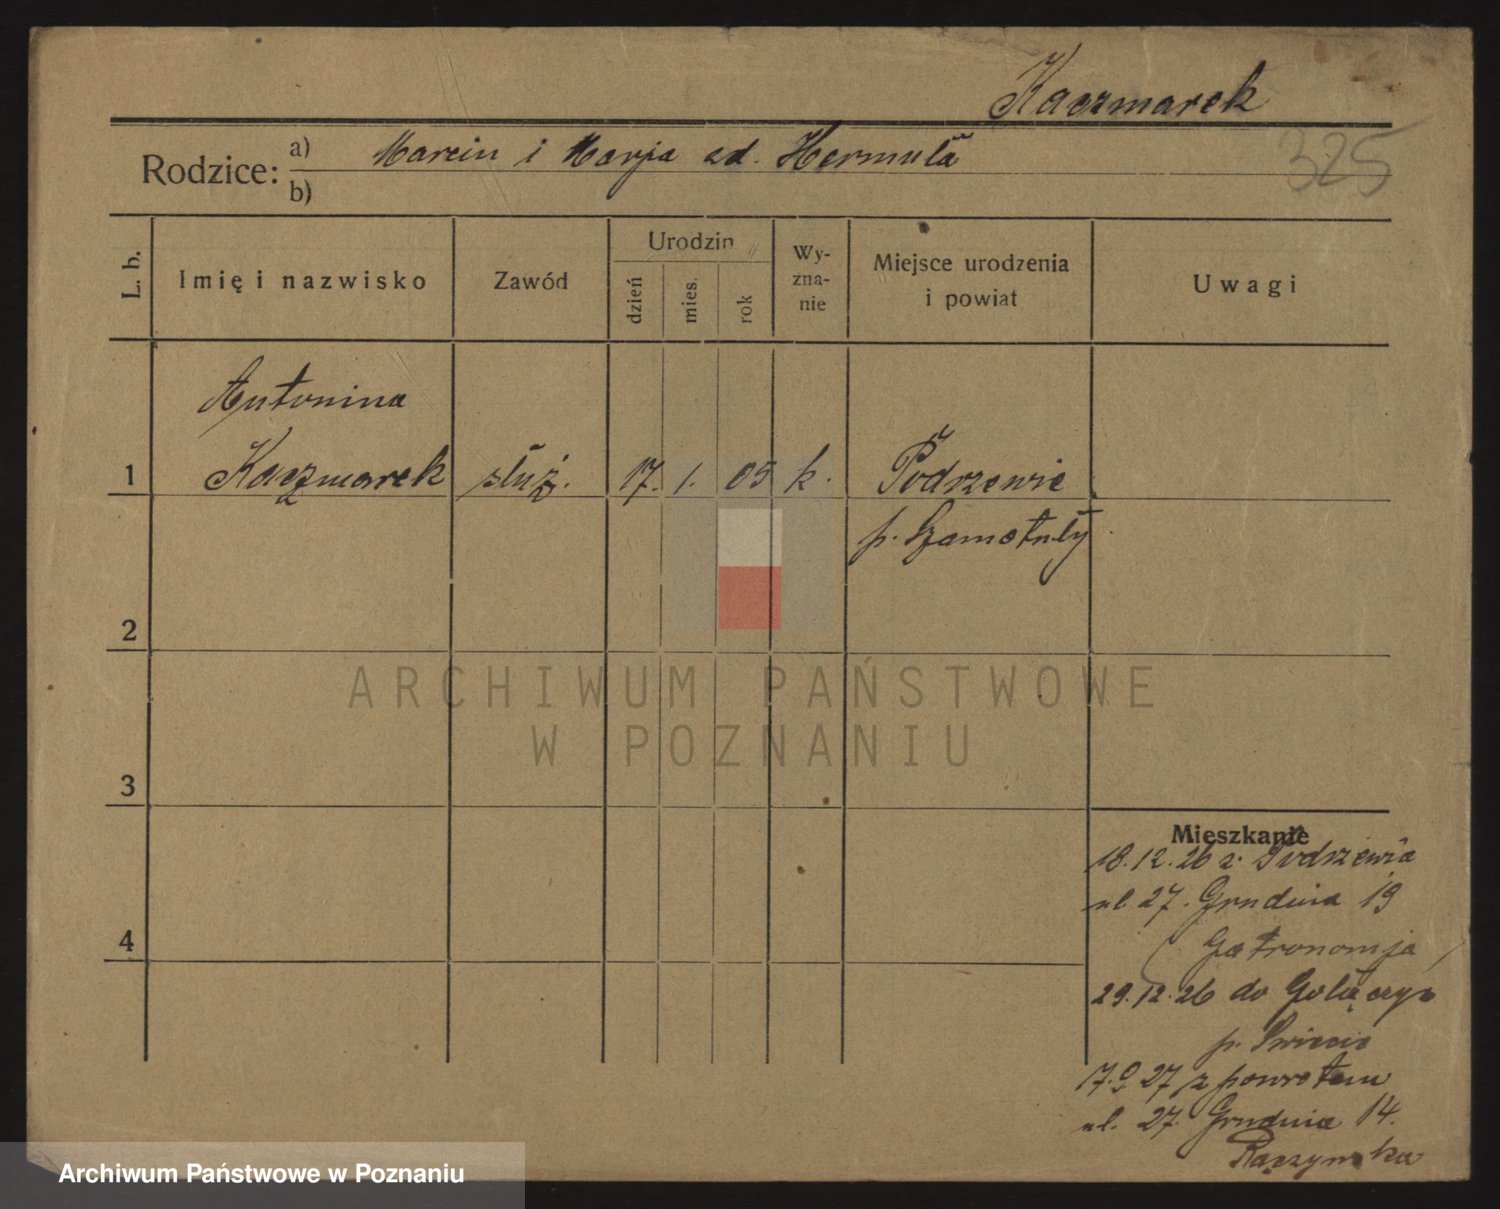 Kaczmarek
325
Rodzice: a) Marcin i Marja zd. Hermuła
b)
L. b. Imię i nazwisko Zawód Urodzin dzień mies. rok Wy- zna- nie Miejsce urodzenia i powiat Uwagi
Antonina
1 Kaczmarek służ. 17. 1. 05 k. Podrzewie
p. Szamotuły
2
3
4
Mieszkanie
18.12.26 z Podrzewia
ul. 27. Grudnia 19
Gatronomja
29.12.26 do
p. Swiecie
17.9.27 z powrotem
ul. 27. Grudnia 14.
ARCHIWUM PAŃSTWOWE
W POZNANIU
Archiwum Państwowe w Poznaniu